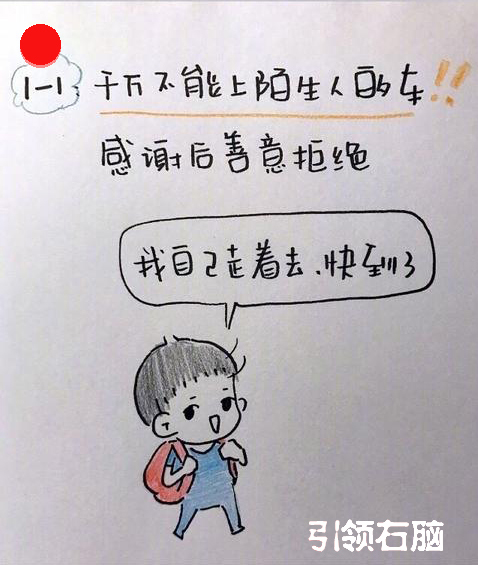 1-1 千万不能上陌生人的车!!
感谢后善意拒绝
我自己走着去、快到了
引领右脑